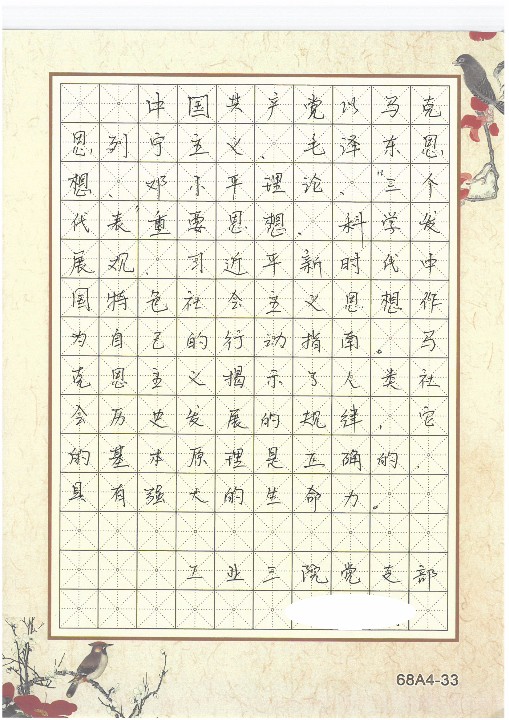 中国共产党以马克
思列宁主义、毛泽东思
想、邓小平理论、“三个
代表”重要思想、科学发
展观、习近平新时代中
国特色社会主义思想作
为自己的行动指南。马
克思主义揭示了人类社
会历史发展的规律，它
的基本原理是正确的，
具有强大的生命力。
工业三院党支部
68A4-33